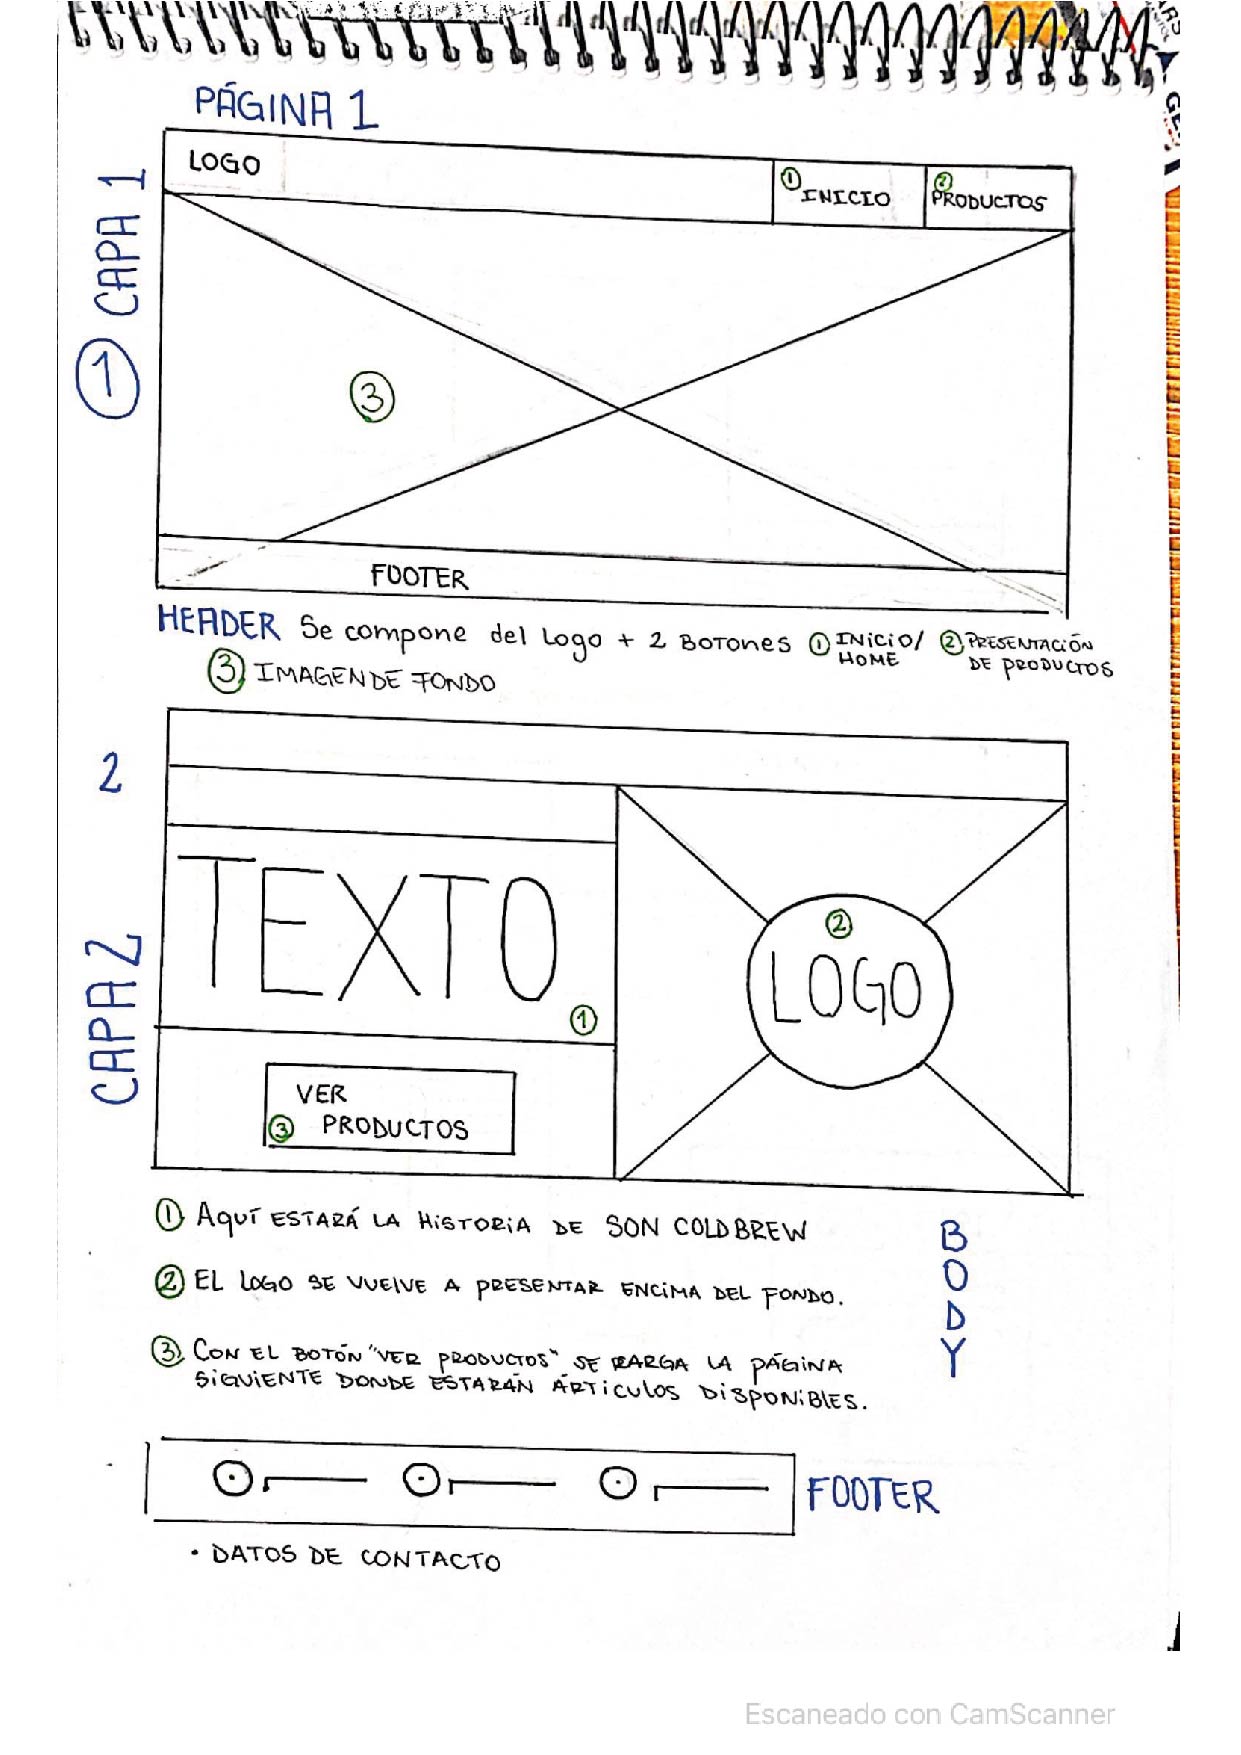 PÁGINA 1
LOGO
① INICIO
② PRODUCTOS
① CAPA 1
③
FOOTER
HEADER Se compone del Logo + 2 BOTONES ① INICIO/ HOME ② PRESENTACIÓN DE PRODUCTOS
③ IMAGEN DE FONDO
2
CAPA 2
TEXTO
①
②
LOGO
VER
③ PRODUCTOS
① AQUÍ ESTARÁ LA HISTORIA DE SON COLDBREW
② EL LOGO SE VUELVE A PRESENTAR ENCIMA DEL FONDO.
③ CON EL BOTÓN "VER PRODUCTOS" SE CARGA LA PÁGINA
SIGUIENTE DONDE ESTARÁN ÁRTICULOS DISPONIBLES.
BODY
FOOTER
• DATOS DE CONTACTO
Escaneado con CamScanner